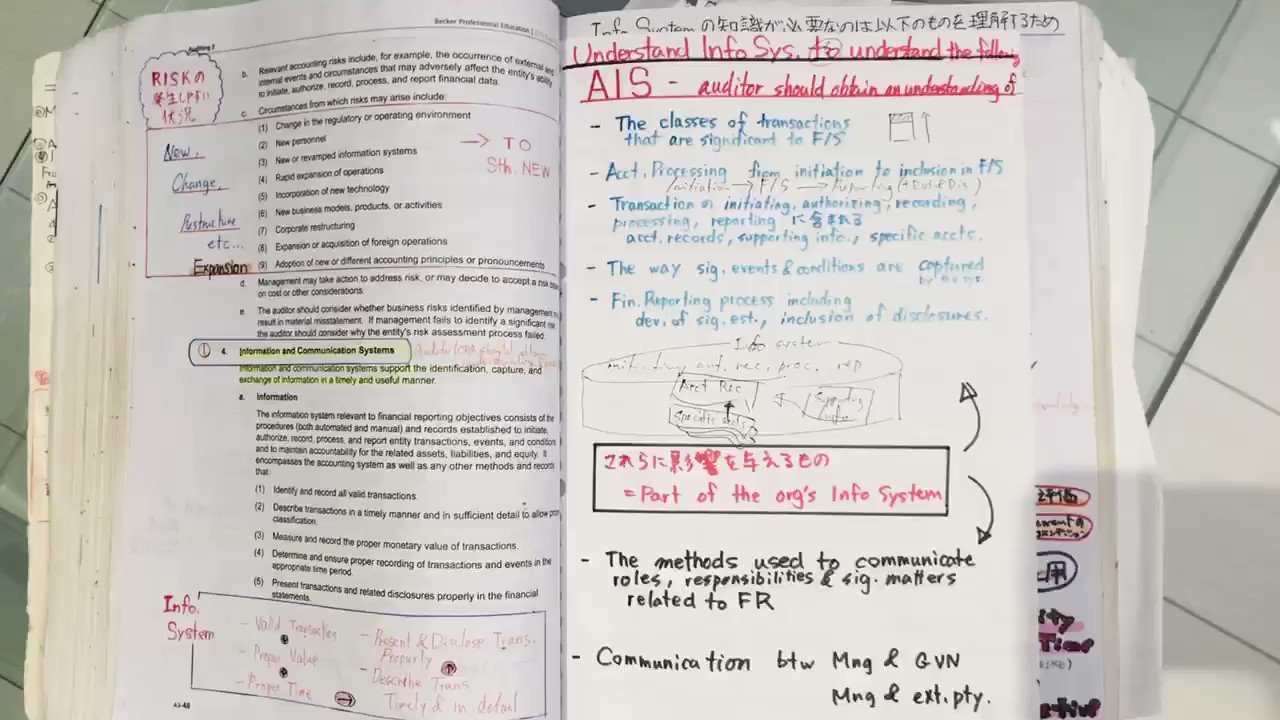 Becker Professional Education
Auditing 3
RISKの
発生しやすい
状況
b. Relevant accounting risks include, for example, the occurrence of external and
internal events and circumstances that may adversely affect the entity's ability
to initiate, authorize, record, process, and report financial data.
c. Circumstances from which risks may arise include:
(1) Change in the regulatory or operating environment
(2) New personnel
(3) New or revamped information systems
(4) Rapid expansion of operations
(5) Incorporation of new technology
(6) New business models, products, or activities
(7) Corporate restructuring
(8) Expansion or acquisition of foreign operations
(9) Adoption of new or different accounting principles or pronouncements
New,
Change,
Restructure
etc...
Expansion
→ TO
Sth. NEW
d. Management may take action to address risk, or may decide to accept a risk
on cost or other considerations.
e. The auditor should consider whether business risks identified by management
result in material misstatement. If management fails to identify a significant risk,
the auditor should consider why the entity's risk assessment process failed.
① 4. Information and Communication Systems
Information and communication systems support the identification, capture, and
exchange of information in a timely and useful manner.
a. Information
The information system relevant to financial reporting objectives consists of the
procedures (both automated and manual) and records established to initiate,
authorize, record, process, and report entity transactions, events, and conditions
and to maintain accountability for the related assets, liabilities, and equity. It
encompasses the accounting system as well as any other methods and records
that:
(1) Identify and record all valid transactions.
(2) Describe transactions in a timely manner and in sufficient detail to allow
classification.
(3) Measure and record the proper monetary value of transactions.
(4) Determine and ensure proper recording of transactions and events in the
appropriate time period.
(5) Present transactions and related disclosures properly in the financial
statements.
Info.
System
- Valid Transaction
- Proper Value
- Proper Time
- Present & Disclose Trans.
Properly
- Describe Trans
Timely & in detail
A3-48
Info System の知識が必要なのは以下のものを理解するため
Understand Info Sys. to understand the following
AIS - auditor should obtain an understanding of
- The classes of transactions
that are significant to F/S
- Acct. Processing from initiation to inclusion in F/S
- Transaction の initiating, authorizing, recording,
processing, reporting に含まれる
acct. records, supporting info., specific accts.
- The way sig. events & conditions are captured
by the sys.
- Fin. Reporting process including
dev. of sig. est., inclusion of disclosures.
Info system
initiating aut. rec. proc. rep
Acct Rec
Supporting
Info
これらに影響を与えるもの
= Part of the org's Info System
- The methods used to communicate
roles, responsibilities & sig. matters
related to FR
- Communication btw Mng & GVN
Mng & ext. pty.